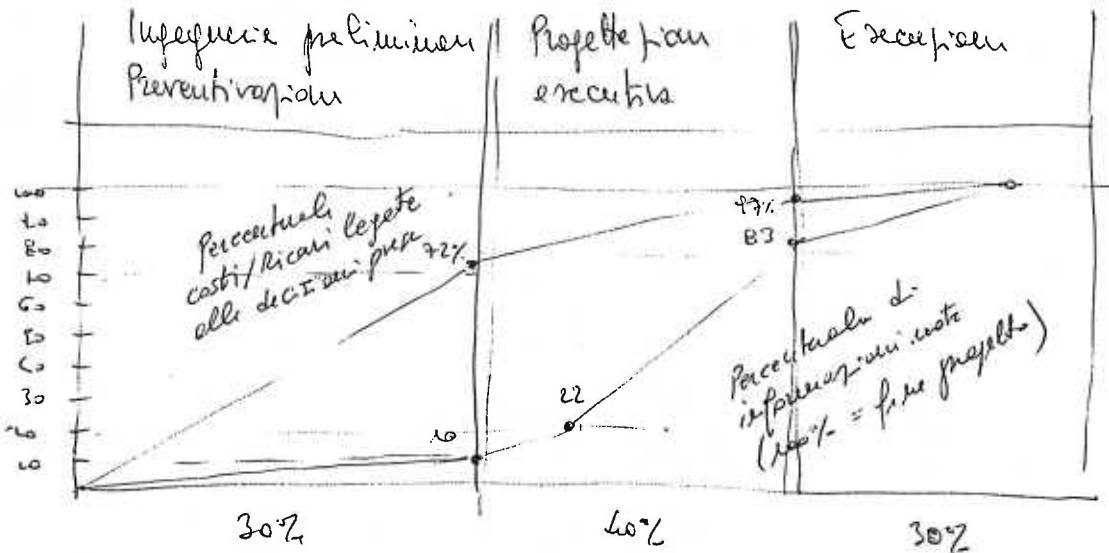 Ingegneria preliminare
Preventivazione
Progettazione
esecutiva
Esecuzione
100
90
80
70
60
50
40
30
20
10
Percentuale
costi/Ricavi legate
alle decisioni prese
72%
97%
83
22
10
Percentuale di
informazioni note
(100% = fine progetto)
30%
40%
30%